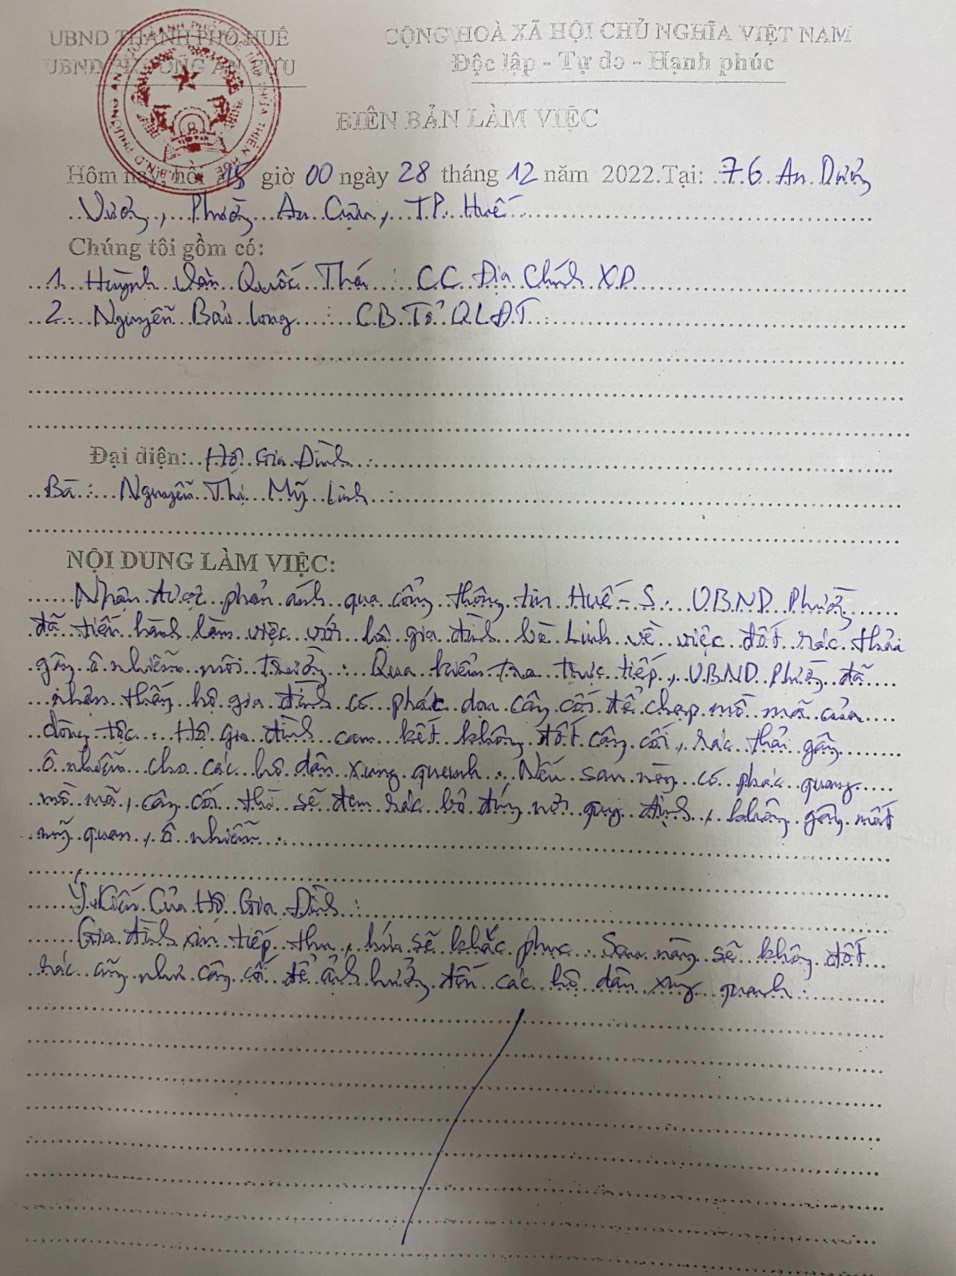 UBND THÀNH PHỐ HUẾ
UBND PHƯỜNG AN CỰU
CỘNG HOÀ XÃ HỘI CHỦ NGHĨA VIỆT NAM
Độc lập - Tự do - Hạnh phúc
BIÊN BẢN LÀM VIỆC
Hôm nay, hồi 15 giờ 00 ngày 28 tháng 12 năm 2022.Tại: 76 An Dương
Vương, Phường An Cựu, TP. Huế
Chúng tôi gồm có:
1. Huỳnh Văn Quốc Thái : CC Địa Chính XD
2. Nguyễn Bảo Long : CB Tổ QLĐT
Đại diện: Hộ Gia Đình :
Bà : Nguyễn Thị Mỹ Linh :
NỘI DUNG LÀM VIỆC:
Nhận được phản ánh qua cổng thông tin Huế-S. UBND Phường
đã tiến hành làm việc với hộ gia đình bà Linh về việc đốt rác thải
gây ô nhiễm môi trường. Qua kiểm tra trực tiếp, UBND Phường đã
nhận thấy hộ gia đình có phát dọn cây cối để chạp mồ mã của
dòng tộc. Hộ gia đình cam kết không đốt cây cối, rác thải gây
ô nhiễm cho các hộ dân xung quanh. Nếu sau này có phát quang
mồ mã, cây cối thì sẽ đem rác bỏ đúng nơi quy định, không gây mất
mỹ quan, ô nhiễm.
Ý Kiến Của Hộ Gia Đình:
Gia đình xin tiếp thu, hứa sẽ khắc phục. Sau này sẽ không đốt
rác cũng như cây cối để ảnh hưởng đến các hộ dân xung quanh.